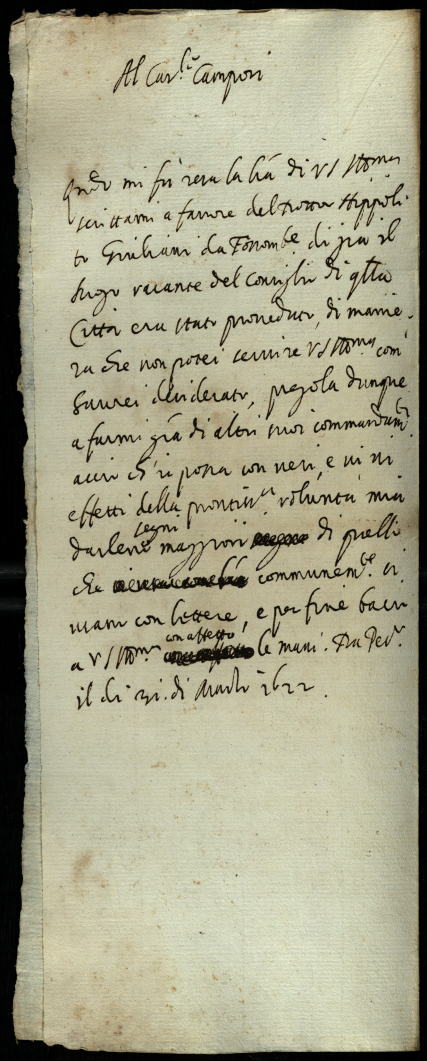 Al Car.le Campori
Quãdo mi fù resa la lrã di VS Illma
scrittami a favore del Dottor Hippoli
to Giuliani da Fossomb.e di già il
luogo vacante del Consiglio di q̃lla
Città era stato proveduto, di manie-
ra che non potei servire VS Illma com'
haurei desiderato, pregola dunque
a farmi grã di altri suoi commandam.ti
acciò ch'io possa con veri, e vivi
effetti della prontiss.ma voluntà mia
darlene segni maggiori di quelli
che communem.te ci
viano con lettere, e per fine bacio
a VS Illma con affetto le mani. Da Pes.o
il dì 31. di Marzo 1622.